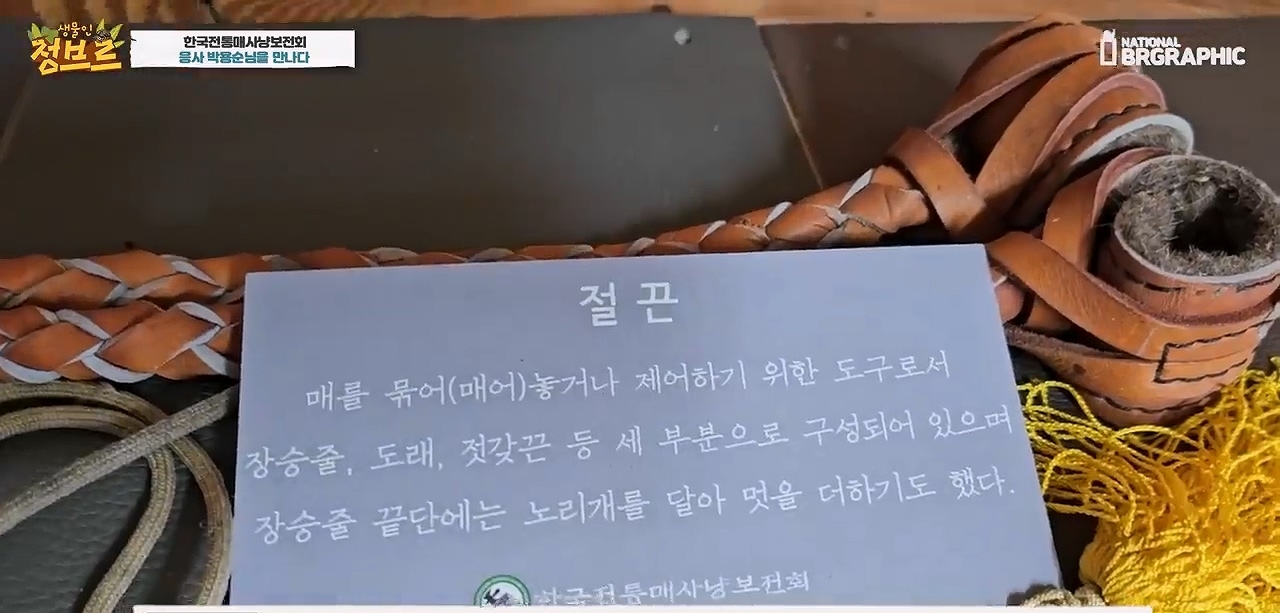 생물인
점브르
한국전통매사냥보전회
응사 박용순님을 만나다
NATIONAL
BRGRAPHIC
절끈
매를 묶어(매어)놓거나 제어하기 위한 도구로서
장승줄, 도래, 젓갖끈 등 세 부분으로 구성되어 있으며
장승줄 끝단에는 노리개를 달아 멋을 더하기도 했다.
한국전통매사냥보전회